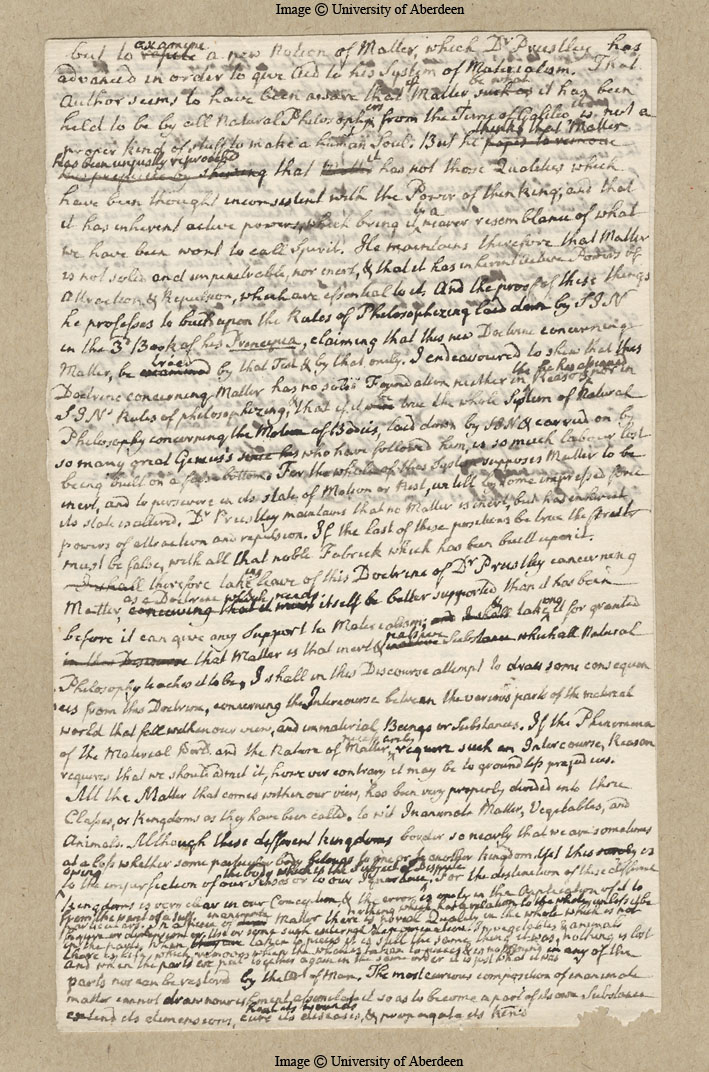 Image © University of Aberdeen
examine
but to refute a new Notion of Matter, which Dr Priestley has
advanced in order to give Aid to his System of Materialism. That
Author seems to have been aware that Matter such as it has been
held to be by all Natural Philosophers from the Time of Galileo, is not a
proper kind of stuff to make a human Soul. But he thinks that Matter
has been unjustly reproached
shewing that it has not those Qualities which
have been thought inconsistent with the Power of thinking, and that
it has inherent active powers, which bring it to a nearer resemblance of what
we have been wont to call Spirit. He maintains therefore that Matter
is not solid and impenetrable, nor inert, & that it has inherent active Powers of
Attraction & Repulsion, which are essential to it. And the proof of these things
he professes to build upon the Rules of Philosophizing laid down by S I N
in the 3d Book of his Principia, claiming that this new Doctrine concerning
Matter, be tried by that Test & by that only. I endeavoured to shew that this
Doctrine concerning Matter has no solid Foundation neither in Reason nor in
S I N's Rules of philosophizing, & that if it be true the whole System of Natural
Philosophy concerning the Motion of Bodies, laid down by S I N & carried on by
so many great Genius's who have followed him, is so much labour lost
being built on a false bottom. For the whole of this System supposes Matter to be
inert, and to persevere in its state of Motion or Rest, until by some impressed force
its state is altered. Dr Priestley maintains that no Matter is inert, but has inherent
powers of attraction and repulsion. If the last of these positions be true the first
must be false, with all that noble Fabrick which has been built upon it.
I shall therefore taking leave of this Doctrine of Dr Priestley concerning
as a Doctrine which needs
Matter, itself be better supported than it has been
before it can give any Support to Materialism; and I shall taking it for granted
in this Discourse that Matter is that inert & passive Substance which all Natural
Philosophy teaches it to be, I shall in this Discourse attempt to draw some consequen
ces from this Doctrine, concerning the Intercourse between the various parts of the material
world that fall within our view, and immaterial Beings or Substances. If the Phenomena
of the Material World and the Nature of Matter necessarily require such an Intercourse, Reason
requires that we should admit it, however contrary it may be to groundless prejudices.
All the Matter that comes within our view, has been very properly divided into three
Classes, or Kingdoms as they have been called, to wit Inanimate Matter, Vegetables, and
Animals. Although these different kingdoms border so nearly that we are sometimes
at a loss whether some particular body belongs to one or to another kingdom. Yet this is
owing the body which is the Subject of Dispute
to the imperfection of our Senses or to our Ignorance. For the distinction of these different
kingdoms is very clear in our Conception & the error is only in the Application of it to
particulars. In a piece of inanimate Matter there is no real Quality in the whole which is not
in the parts, when taken to pieces it is still the same thing it was, nothing is lost
and when the parts are put together again in the same order it is just what it was
in any of the
parts nor can be restored by the Art of Man. The most curious composition of inanimate
matter cannot draw nourishment, assimilate it so as to become a part of its own Substance
heal its wounds
extend its dimensions, cure its diseases, & propagate its kind
Image © University of Aberdeen